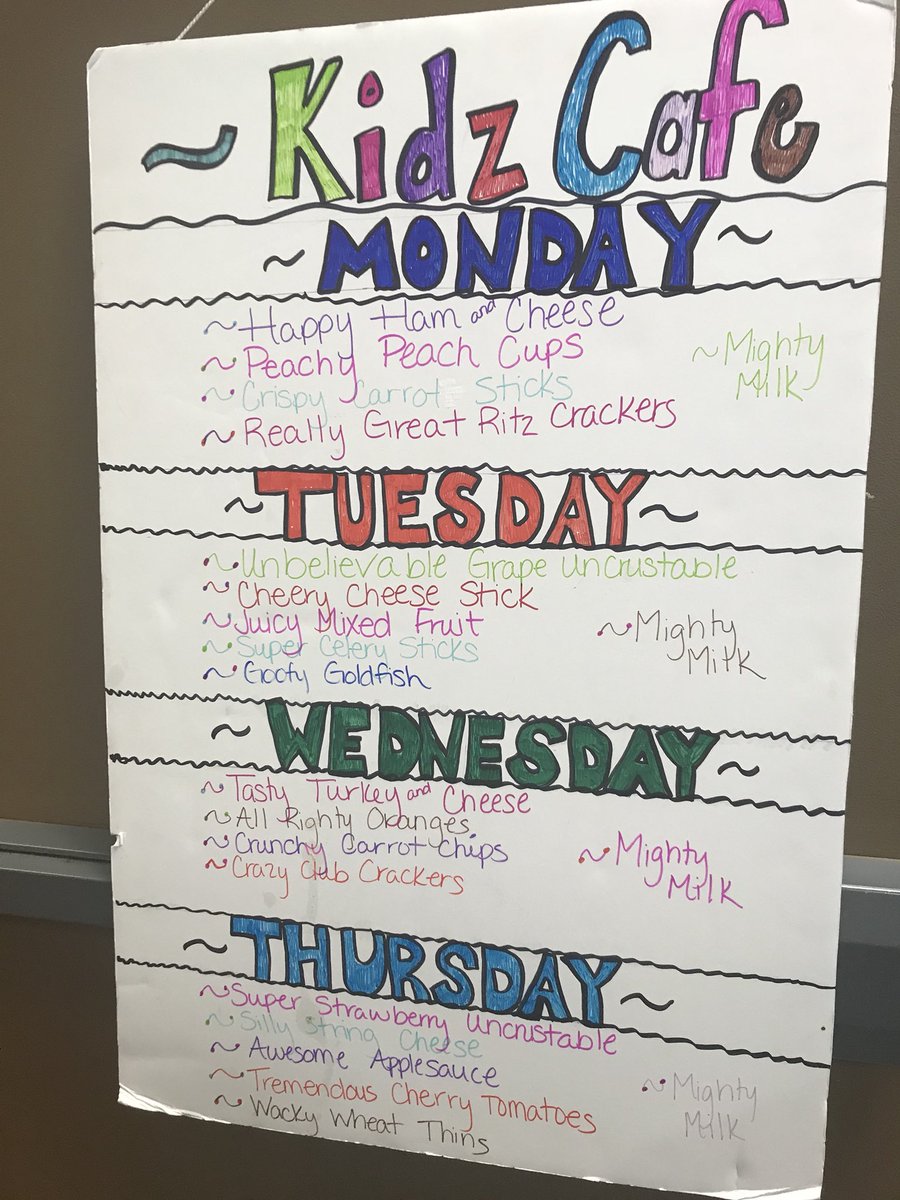 ~ Kidz Cafe
~ MONDAY ~
~ Happy Ham and Cheese
~ Peachy Peach Cups
~ Crispy Carrot Sticks
~ Really Great Ritz Crackers
~ Mighty
Milk
~ TUESDAY ~
~ Unbelievable Grape Uncrustable
~ Cheery Cheese Stick
~ Juicy Mixed Fruit
~ Super Celery Sticks
~ Goofy Goldfish
~ Mighty
Milk
~ WEDNESDAY ~
~ Tasty Turkey and Cheese
~ All Righty Oranges
~ Crunchy Carrot Chips
~ Crazy Club Crackers
~ Mighty
Milk
~ THURSDAY ~
~ Super Strawberry Uncrustable
~ Silly String Cheese
~ Awesome Applesauce
~ Tremendous Cherry Tomatoes
~ Wacky Wheat Thins
~ Mighty
Milk